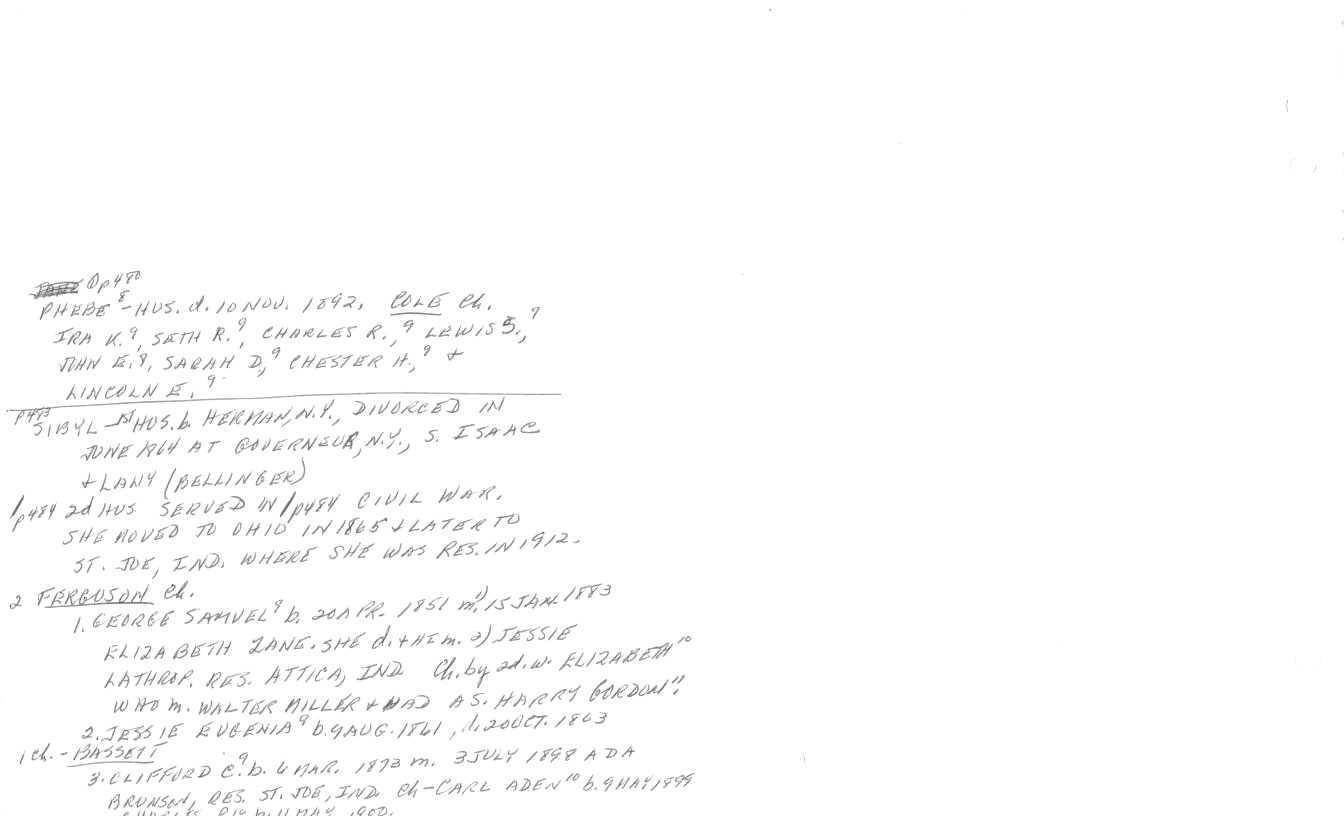 p480
PHEBE⁸ - HUS. d. 10 NOV. 1892. COLE Ch.
IRA K.⁹, SETH R.⁹, CHARLES R.,⁹ LEWIS S.,⁹
JOHN E.⁹, SARAH D,⁹ CHESTER H.,⁹ +
LINCOLN E.⁹
p483
SIBYL - 1st HUS. b. HERMAN, N.Y., DIVORCED IN
JUNE 1864 AT GOVERNEUR, N.Y., S. ISAAC
+ LANY (BELLINGER)
/p484 2d HUS SERVED IN /p484 CIVIL WAR.
SHE MOVED TO OHIO IN 1865 + LATER TO
ST. JOE, IND. WHERE SHE WAS RES. IN 1912.
2 FERGUSON Ch.
1. GEORGE SAMUEL⁹ b. 20 APR. 1851 m. 1) 15 JAN. 1883
ELIZABETH LANE. SHE d. + HE m. 2) JESSIE
LATHROP. RES. ATTICA, IND Ch. by 2d. w. ELIZABETH¹⁰
WHO m. WALTER MILLER + HAD A S. HARRY GORDON¹¹.
2. JESSIE EUGENIA⁹ b. 9 AUG. 1861, d. 20 OCT. 1863
1 ch. - BASSETT
3. CLIFFORD C.⁹ b. 6 MAR. 1873 m. 3 JULY 1898 ADA
BRUNSON, RES. ST. JOE, IND. Ch - CARL ADEN¹⁰ b. 9 MAY 1899
CHARLES R¹⁰ b. 11 MAY 1900.